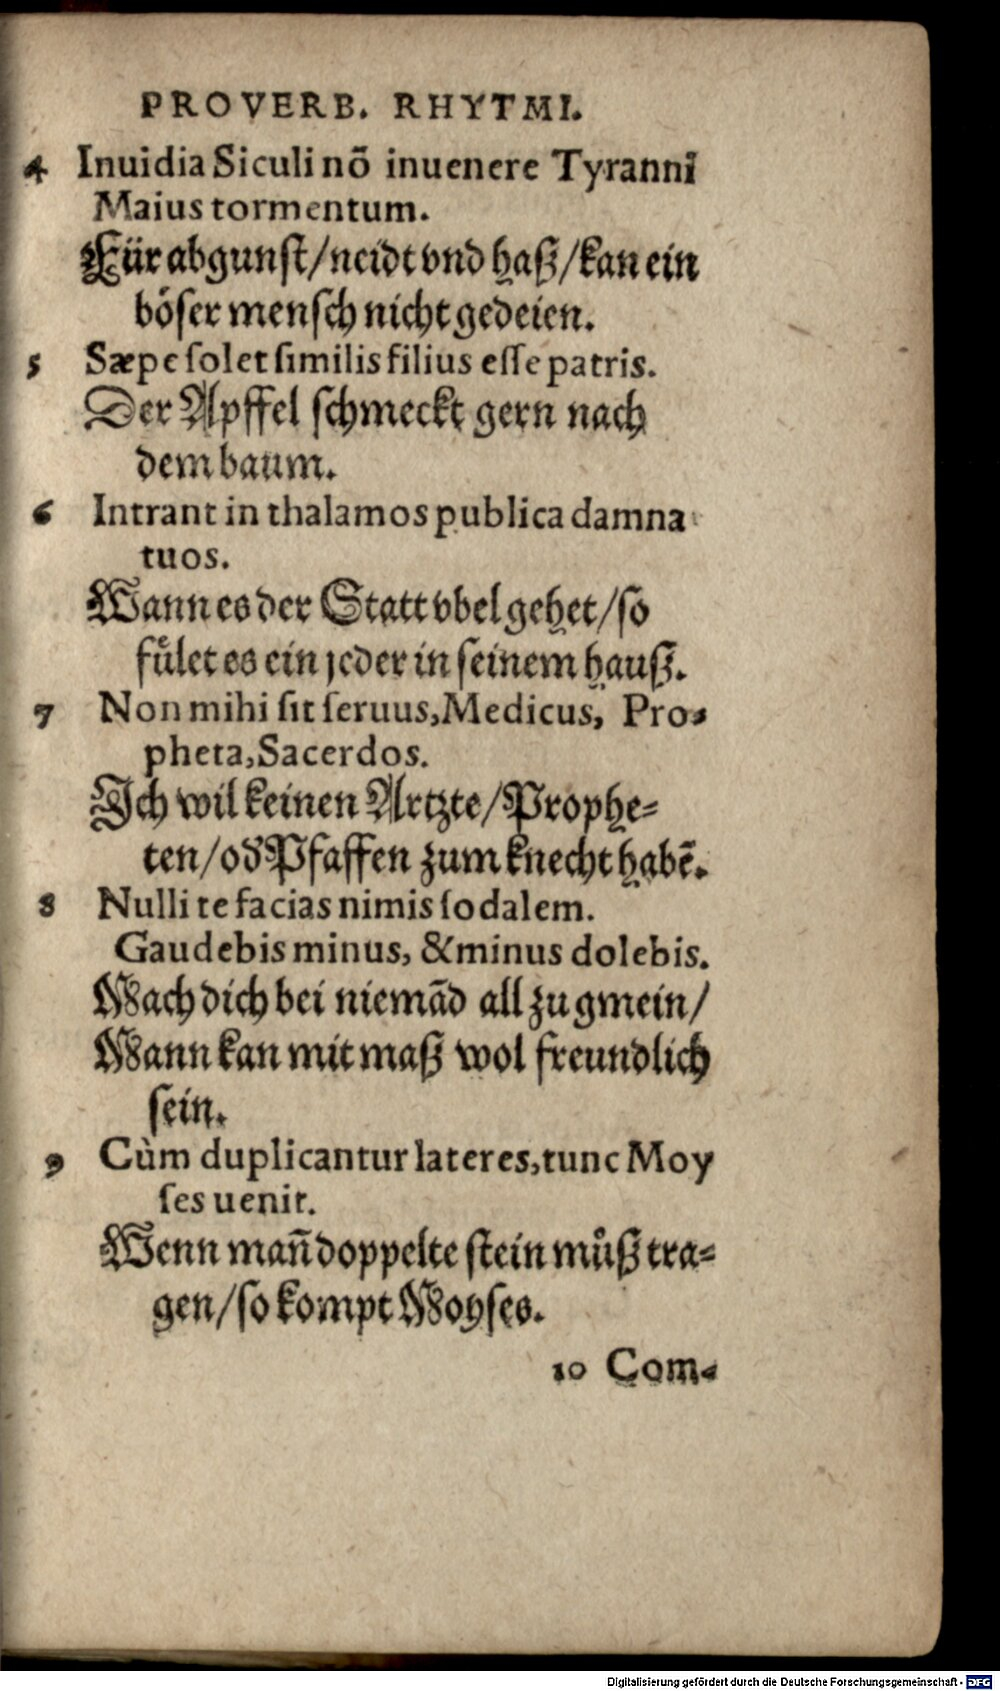 PROVERB. RHYTMI.
4 Inuidia Siculi nõ inuenere Tyranni
Maius tormentum.
Für abgunſt/neidt vnd haß/kan ein
böſer menſch nicht gedeien.
5 Sæpe ſolet ſimilis filius eſſe patris.
Der Apffel ſchmeckt gern nach
dem baum.
6 Intrant in thalamos publica damna
tuos.
Wann es der Statt vbel gehet/ſo
fuͤlet es ein jeder in ſeinem hauß.
7 Non mihi ſit ſeruus, Medicus, Pro-
pheta, Sacerdos.
Ich wil keinen Artzte/Prophe⸗
ten/oď Pfaffen zum knecht habẽ.
8 Nulli te facias nimis ſodalem.
Gaudebis minus, & minus dolebis.
Mach dich bei niemãd all zu gmein/
Mann kan mit maß wol freundlich
ſein.
9 Cùm duplicantur lateres, tunc Moy
ſes uenit.
Wenn mañ doppelte ſtein muͦß tra⸗
gen/ſo kompt Moyſes.
10 Com-
Digitalisierung gefördert durch die Deutsche Forschungsgemeinschaft - DFG